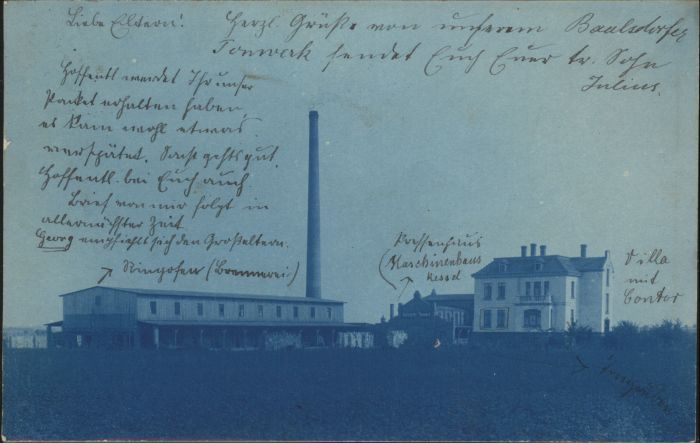 Liebe Eltern!
Herzl. Grüße von unserem Baalsdorfer
Tonwerk sendet Euch Euer tr. Sohn
Julius.
Hoffentl. werdet Ihr unser
Packet erhalten haben,
es kam wohl etwas
verspätet. Sonst gehts gut.
Hoffentl. bei Euch auch.
Brief von mir folgt in
allernächster Zeit
Georg empfiehlt sich den Großeltern.
Ringofen (Brennerei)
Pressenhaus
(Maschinenhaus
Kessel
Villa
mit
Contor